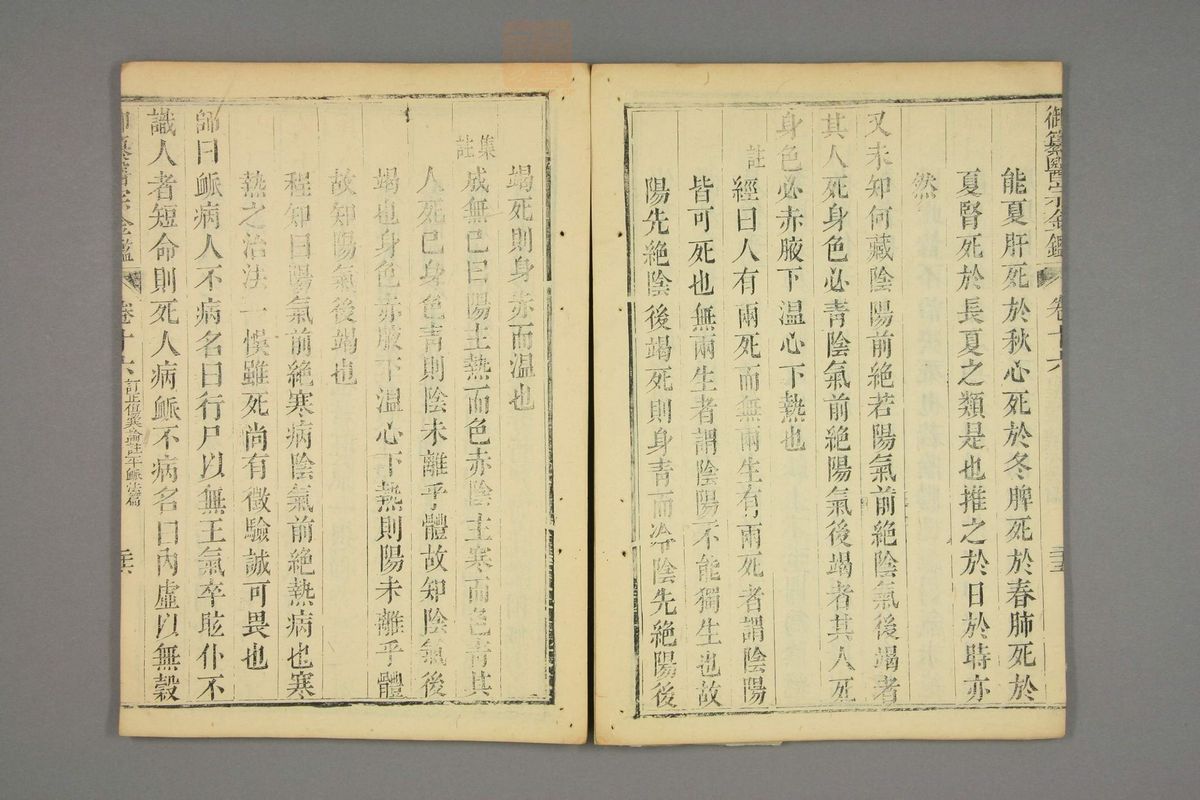 御纂醫宗金鑑 卷十六
能夏肝死於秋心死於冬脾死於春肺死於
夏腎死於長夏之類是也推之於日於時亦
然
又未知何藏陰陽前絶若陽氣前絶陰氣後竭者
其人死身色必青陰氣前絶陽氣後竭者其人死
身色必赤腋下温心下熱也
註
經曰人有兩死而無兩生有兩死者謂陰陽
皆可死也無兩生者謂陰陽不能獨生也故
陽先絶陰後竭死則身青而冷陰先絶陽後
竭死則身赤而温也
集註
成無己曰陽主熱而色赤陰主寒而色青其
人死已身色青則陰未離乎體故知陰氣後
竭也身色赤腋下温心下熱則陽未離乎體
故知陽氣後竭也
程知曰陽氣前絶寒病陰氣前絶熱病也寒
熱之治法一悞雖死尚有徵驗誠可畏也
師曰脈病人不病名曰行尸以無王氣卒眩仆不
識人者短命則死人病脈不病名曰内虛以無穀
御纂醫宗金鑑 卷十六 訂正傷寒論註平脈法篇